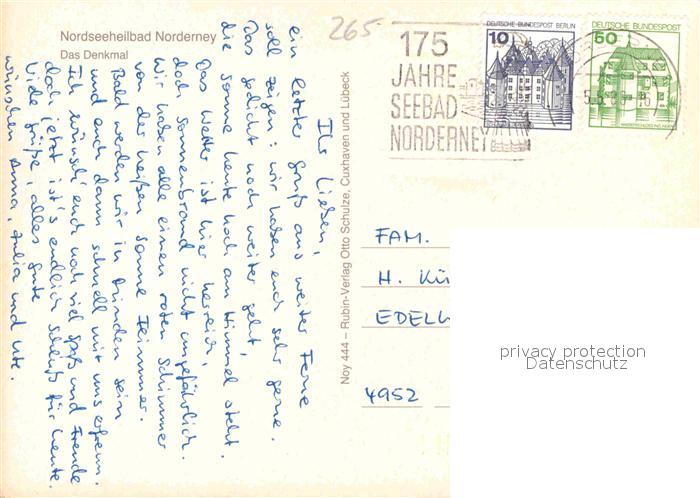 265-
Nordseeheilbad Norderney
Das Denkmal
175
JAHRE
SEEBAD
NORDERNEY
DEUTSCHE BUNDESPOST BERLIN
10
DEUTSCHE BUNDESPOST
50
Ihr Lieben,
ein letzter Gruß aus weiter Ferne
soll zeigen: wir haben euch sehr gerne.
Das Gedicht noch weiter geht,
die Sonne heute hoch am Himmel steht.
Das Wetter ist hier herrlich,
doch Sonnenbrand nicht ungefährlich.
Wir haben alle einen roten Schimmer
von der heißen Sonne Flimmer.
Bald werden wir in Minden sein
und euch dann schnell mit uns erfreun.
Ich wünsch' euch noch viel Spaß und Freude
doch jetzt ist's endlich Schluß für heute.
Viele Grüße, alles Gute
wünschen Anna, Julia und Ute.
Noy 444 – Rubin-Verlag Otto Schulze, Cuxhaven und Lübeck
FAM.
H. KÜ
EDELW
4952
privacy protection
Datenschutz